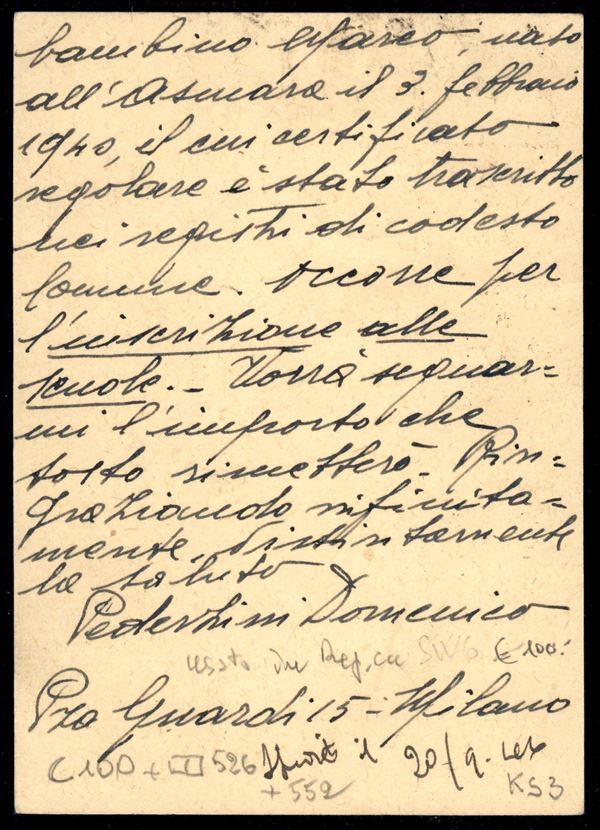 bambino Marco, nato
all'Asmara il 3. febbraio
1940, il cui certificato
regolare è stato trascritto
nei registri di codesto
Comune. Occorre per
l'inscrizione alle
scuole. - Vorrà segnar=
mi l'importo che
tosto rimetterò. Rin=
graziando infinita=
mente, distintamente
la saluto
Pederzini Domenico
€ 100.-
Pza Guardi 15 - Milano
€ 100 + 526 il 20/9.
+ 552
KS3